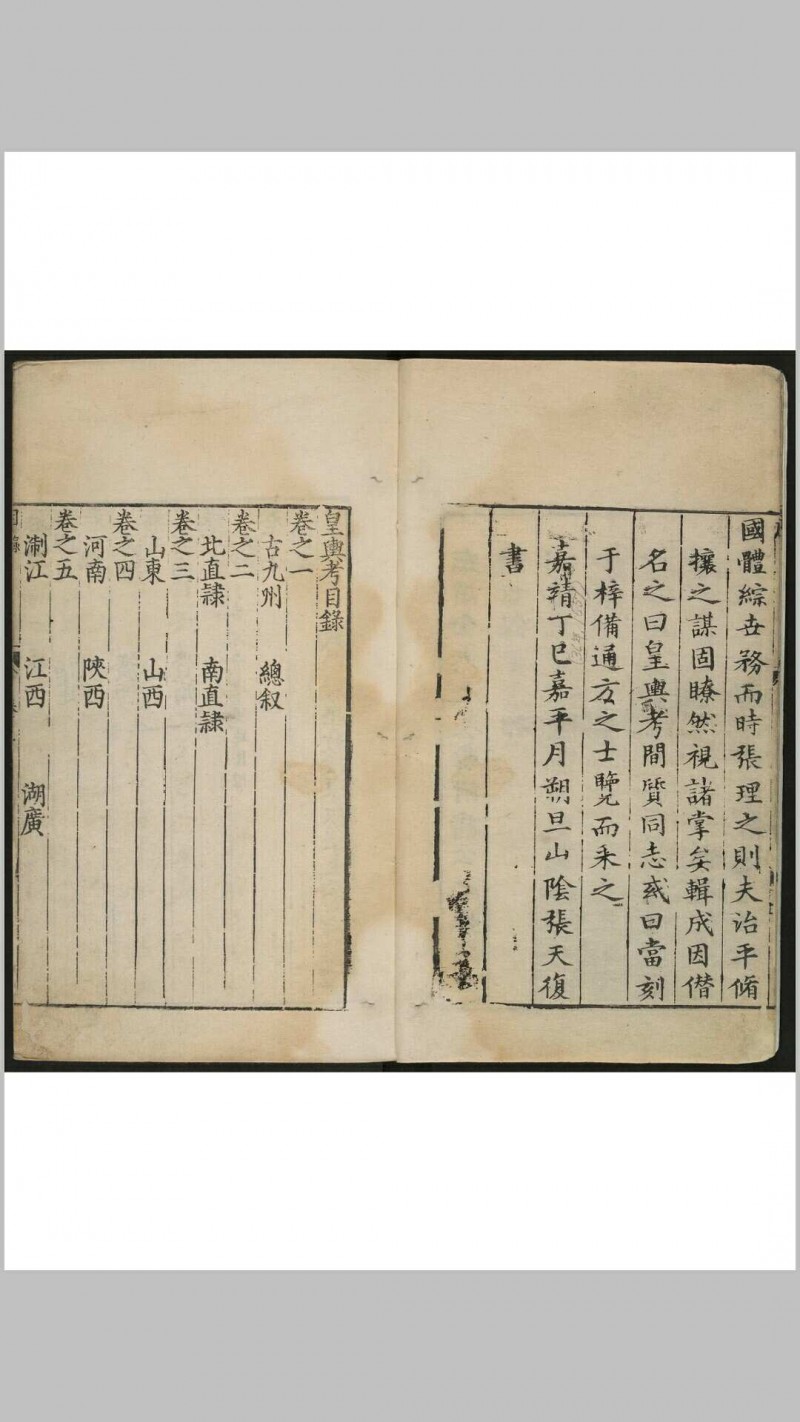 國體綜世務而時張理之則夫治平脩
攘之謀固瞭然視諸掌矣輯成因僣
名之曰皇輿考間質同志或曰當刻
于梓備通方之士覽而采之
嘉靖丁巳嘉平月朔旦山陰張天復
書
皇輿考目錄
卷之一
古九州 總叙
卷之二
北直隸 南直隸
卷之三
山東 山西
卷之四
河南 陝西
卷之五
浙江 江西 湖廣